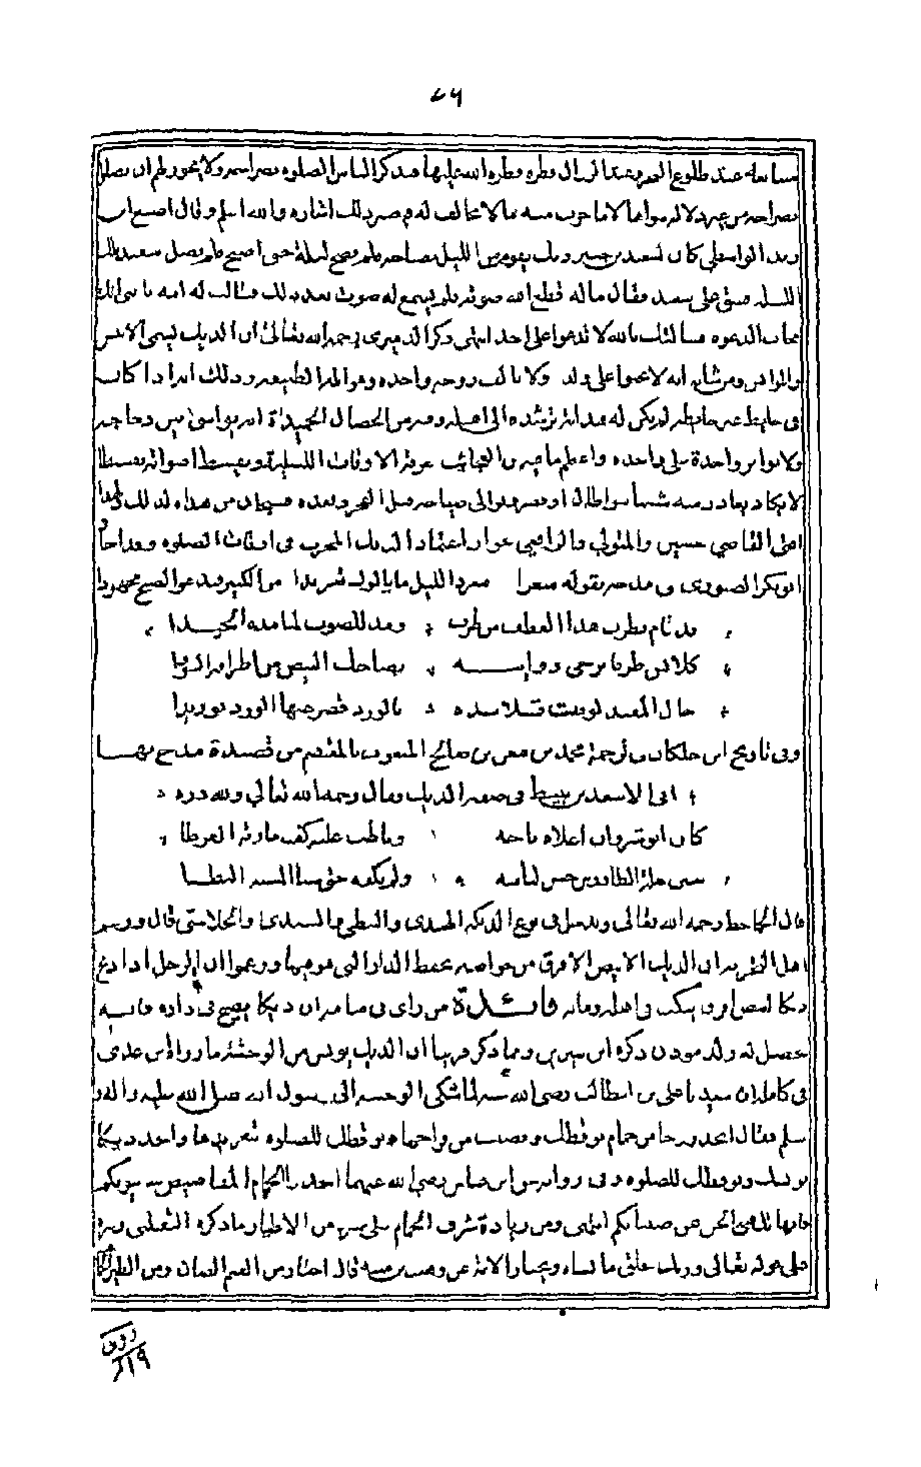 ٤٦
متتابعة عند طلوع الفجر وعند الزوال فطرة فطره الله عليها فتذكر الناس الصلوة بصراخه ولا يجوز لهم ان يصلوا
بصراخه من غير دلالة سواها الا من جرب منه ما لا يخالف له فيصير ذلك اشاره والله اعلم وقال اصبغ ابن
زيد الواسطي كان لسعيد بن جبير ديك يقوم من الليل بصياحه فلم يصح ليلة حتى اصبح فلم يصل سعيد تلك
الليلة فشق على سعيد فقال ماله قطع الله صوته فلم يسمع له صوت بعد ذلك فقالت له امه يا بني انك
مجاب الدعوه فسالتك بالله لا تدعوا على احد انتهى ذكر الدميري رحمه الله تعالى ان الديك يسمى الانيس
والمؤانس ومن شانه انه لا يحنوا على ولد ولا يالف زوجه واحده وهو ابله الطبيعه وذلك انه اذا كان
في حايط غير حايطه لم يكن له هداية ترشده الى اهله وفيه من الخصال الحميدة انه يواسي بين دجاجه
ولا يؤثر واحدة على واحده واعظم ما فيه من العجائب معرفة الاوقات الليلية ويقسط اصواته تقسيطا
لا يكاد يغادر منه شيئا سوا طال او قصر ويوالي صياحه قبل الفجر وبعده فسبحان من هداه لذلك ولهذا
افتى القاضي حسين والمتولي والرافعي بجواز اعتماد الديك المجرب في اوقات الصلوه
ابو بكر الصنوبري في مدحه بقوله شعرا مغرد الليل ما يالوك تغريدا مل الكرى فهو يدعو الصبح مجهودا
لما تطرب هز العطف من طرب ومد للصوت لما مده الجيدا
كلابس مطرفا مرخ ذوايبه تضاحك البيض من اطرافه السودا
حالي المقلد لو قيست قلائده بالورد قصر عنها الورد توريدا
وفي تاريخ ابن خلكان في ترجمة محمد بن معن بن صمادح المنعوت بالمعتصم من قصيدة مدحه بها
ابي الاسعد بن بليطة في صفة الديك وقال رحمه الله تعالى ولله دره
كان انوشروان اعلاه تاجه وناطت عليه كف مارية القرطا
سبى حلة الطاووس حسن لباسه ولم يكفه حتى سبا المشية البطا
قال الجاحظ رحمه الله تعالى ويدخل في نوع الديكة الهندي والنبطي والسندي والخلاسي قال وزعم
اهل التجربه ان الديك الابيض الافرق من خواصه يحفظ الدار التي هو فيها وزعموا ان الرجل اذا ذبح
ديكا ابيض افرق ينكب في اهله وماله فائدة من راى في منامه ان ديكا يصيح في داره فانه
يحصل له ولد موذن ذكره ابن سيرين ومما ذكر قريبا ان الديك يونس من الوحشة ما رواه ابن عدي
في كامله ان سيدنا علي بن ابي طالب رضي الله عنه لما شكى الوحشة الى رسول الله صلى الله عليه واله و
سلم فقال اتخذ زوجا من حمام يوقظك وتصب من فراخها ويوقظك للصلوه تغريدها واتخذ ديكا
يونسك ويوقظك للصلوه وفي رواية ابن عباس رضي الله عنهما اتخذوا الحمام المقاصيص في بيوتكم
فانها تلهي الجن عن صبيانكم انتهى ومن زيادة شرف الحمام على غيره من الاطيار ما ذكره الثعلبي وغيره
على قوله تعالى وربك يخلق ما يشاء ويختار الاية عن وهب بن منبه قال اختار من الغنم الضان ومن الطير الحمام